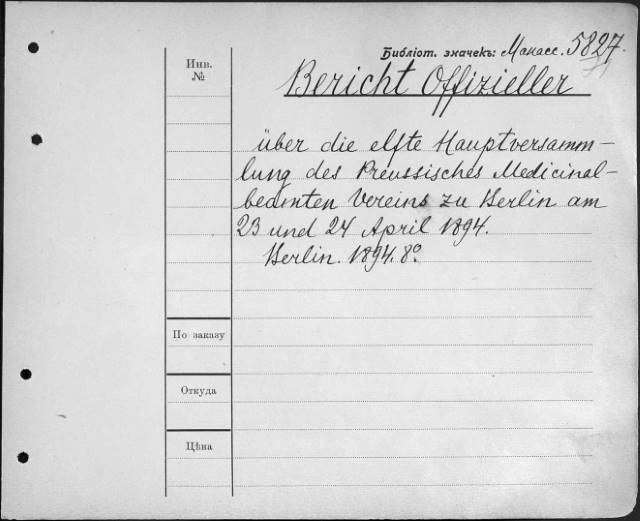 Библіот. значекъ: Манасс. 5827.
Инв.
№
Bericht Offizieller
über die elfte Hauptversamm-
lung des Preussisches Medicinal-
beamten Vereins zu Berlin am
23 und 24 April 1894.
Berlin. 1894. 8º.
По заказу
Откуда
Цѣна